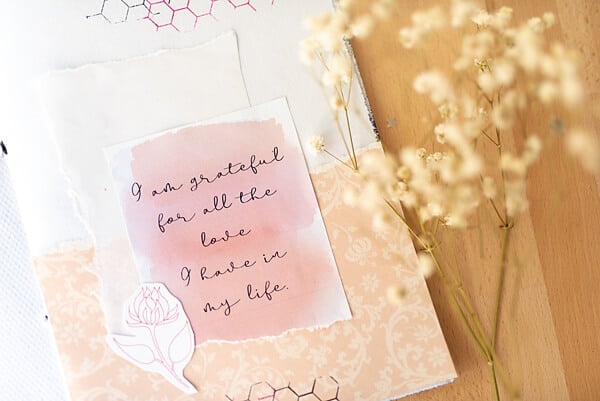 I am grateful
for all the
love
I have in
my life.